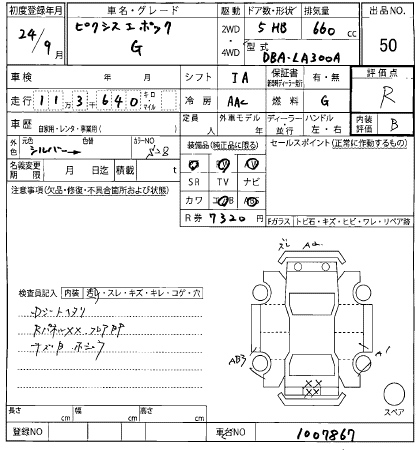 初度登録年月 車名・グレード 駆動 ドア数・形状 排気量 出品NO.
24/9月 ピクシスエポック G 2WD・4WD 5HB 660cc 50
型式 DBA-LA300A
車検 年 月 シフト IA 保証書 有・無 評価点
走行 11万3千640 キロ・マイル 冷房 AAC 燃料 G R
車歴 自家用・レンタ・事業用( ) 定員 人 外車モデル 年 ディーラー・並行 ハンドル 左・右 内装評価 B
外色 元色 シルバー 色替 カラーNO. 装備品(純正品に限る) セールスポイント(正常に作動するもの)
名義変更期限 月 日迄 積載 t SR TV ナビ
注意事項(欠品・修復・不具合箇所および状態) カワ
R券 7320円
Fガラス トビ石・キズ・ヒビ・ワレ・リペア跡
ズレ
検査員記入 内装 ・スレ・キズ・キレ・コゲ・穴
AB3 A1
XX
XX
スペア
長さ cm 幅 cm 高さ cm
登録NO 車台NO 1007867